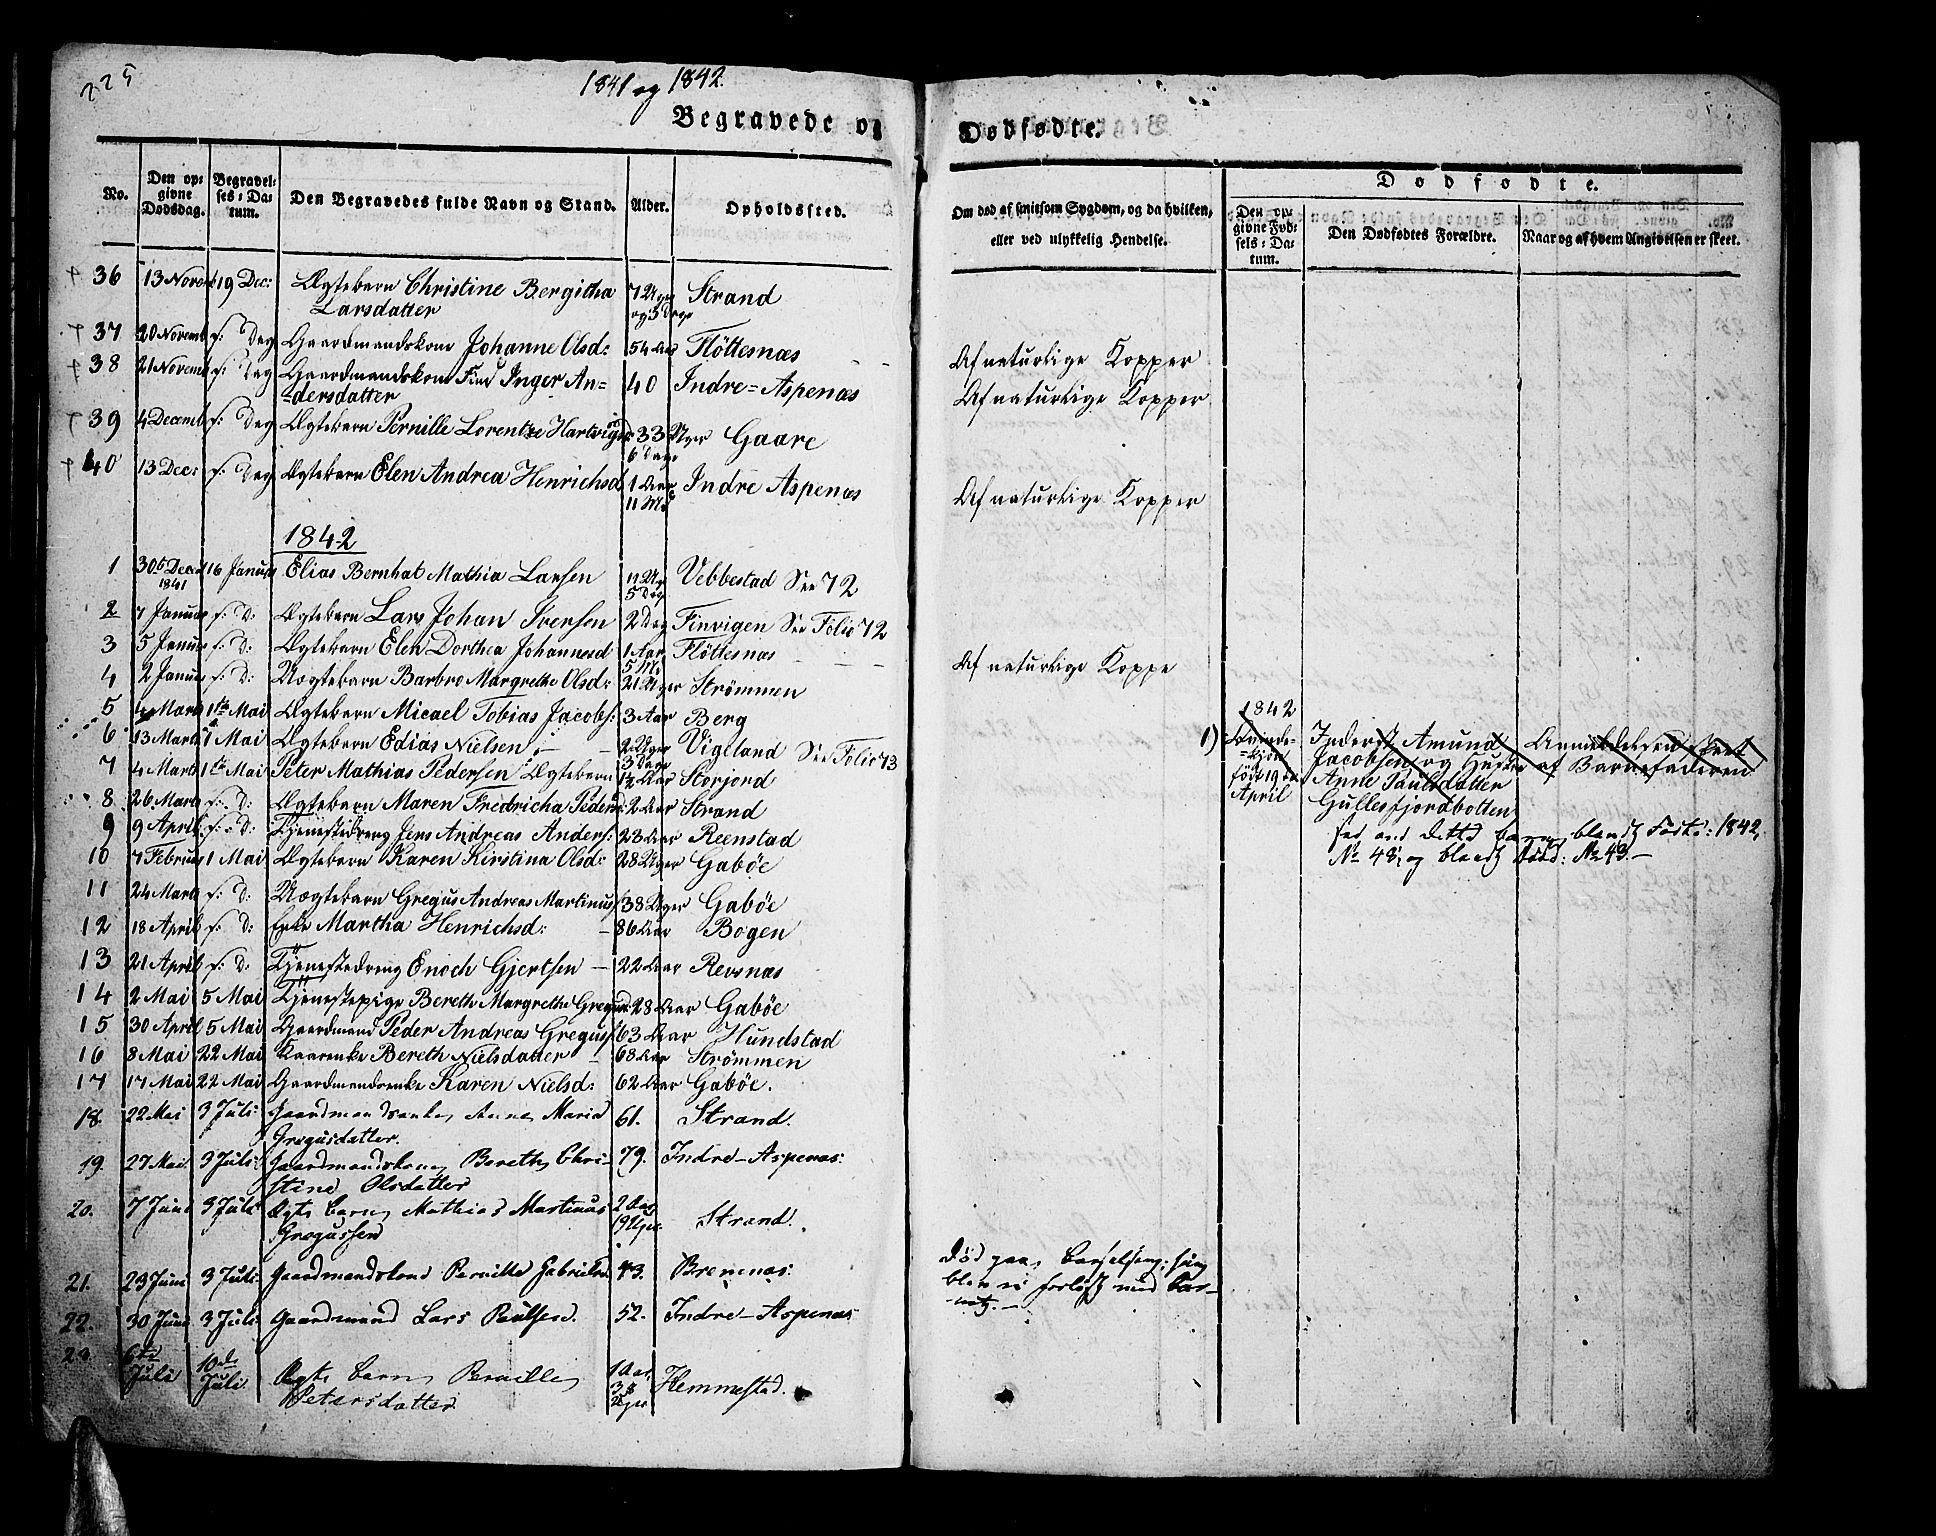 225
1841 og 1842.
Begravede og
Dødfødte.
No.
Den opgivne Dødsdag.
Begravelses-Datum.
Den Begravedes fulde Navn og Stand.
Alder.
Opholdssted.
Om død af smitsom Sygdom, og da hvilken,
eller ved ulykkelig Hendelse.
Dødfødte.
Den opgivne Fødsels-Datum.
Den Dødfødtes Forældre.
Naar og af hvem Angivelsen er skeet.
36 13 Novem 19 Dec: Ægtebarn Christine Bergitha 7 Uger Strand
Larsdatter og 3 Dage
37 20 Novemb s: Dag Gaardmandskone Johanne Olsd: 54 Aar Fløttesnæs Af naturlige Kopper
38 21 Novemb s: Dag Gaardmandskone Find Inger An= 40 Indre=Aspenæs Af naturlige Kopper
=dersdatter
39 4 Decemb s: Dag Ægtebarn Pernille Lorentze Hartvigsd 33 Uger Gaare
6 Dage
40 13 Dec: s: Dag Ægtebarn Elen Andrea Henrichsd 1 Aar Indre Aspenæs Af naturlige Kopper
11 Md
1842
1 30 Decem 16 Januar Elias Bernhat Mathia Larsen 11 Ug Vebbestad See 72
1841 5 Dag
2 7 Januar s: D: Ægtebarn Lars Johan Iversen 2 Dag Finvigen See Folio 72
3 5 Januar s: D: Ægtebarn Elen Dorthea Johannesd 1 Aar Fløttesnæs Af naturlige Koppe
5 Md
4 2 Januar s: D: Uægtebarn Barbro Margrethe Olsd: 21 Uger Strømmen
5 4 Marts 1te Mai Ægtebarn Micael Tobias Jacobs: 3 Aar Berg
6 13 Marts 1 Mai Ægtebarn Edias Nielsen 2 Uger Vigeland See Folio 73
3 Dage
7 4 Marts 1te Mai Peter Mathias Pedersen Ægtebarn 1½ Aar Storjord
8 26 Marts s: D: Ægtebarn Maren Fredricha Pedersd: 2 Aar Strand
9 9 April s: D: Tjenestedreng Jens Andreas Anders: 23 Aar Reenstad
10 7 Februar 1 Mai Ægtebarn Karen Kirstina Olsd: 28 Uger Gabøe
11 24 Marts s: D: Uægtebarn Gregus Andreas Martinus: 38 Uger Gabøe
12 18 April s: D: Enke Martha Henrichsd: 86 Aar Bogen
13 21 April s: D: Tjenestedreng Enoch Gjertsen 22 Aar Revsnæs
14 2 Mai 5 Mai Tjenestepige Bereth Margrethe Gregusd: 28 Aar Gabøe
15 30 April 5 Mai Gaardmand Peder Andreas Greguss: 63 Aar Hundstad
16 8 Mai 22 Mai Kaarenke Bereth Nielsdatter 68 Aar Strømmen
17 17 Mai 22 Mai Gaardmandsenke Karen Nielsd: 62 Aar Gabøe.
18. 22 Mai 3 Juli: Gaardmandsenke Anne Maria 61. Strand.
Gregusdatter.
19. 27 Mai. 3 Juli: Gaardmandskone Bereth Chri- 79. Indre-Aspenæs:
stine Olsdatter
20. 7 Juni 3 Juli Ægte barn Mathias Martinus 2 Aar Strand.
Gregussen 19 Uger.
21. 23 Juni 3 Juli: Gaardmandskone Pernille Gabrielsd 43. Brenenæs:
Død paa Barselseng; hun
blev ei forløst med Bar-
-net. -
22. 30 Juni 3 Juli: Gaardmand Lars Paulsen. 52. Indre-Aspenæs
23. 6te Juli 10de Juli Ægte barn Pernille 1 Aar Hemmestad.
Petersdatter 3 Uger
1842
1) Qvinde- Inderst Amund Anmeldelsen skeet
=kjøn Jacobsen og Hustru af Barnefaderen
født 19de Anne Paulsdatter
April Gullesfjordbotten
see om dette barn blandt Fødte: 1842,
No 48, og blandt Død: No 43. -